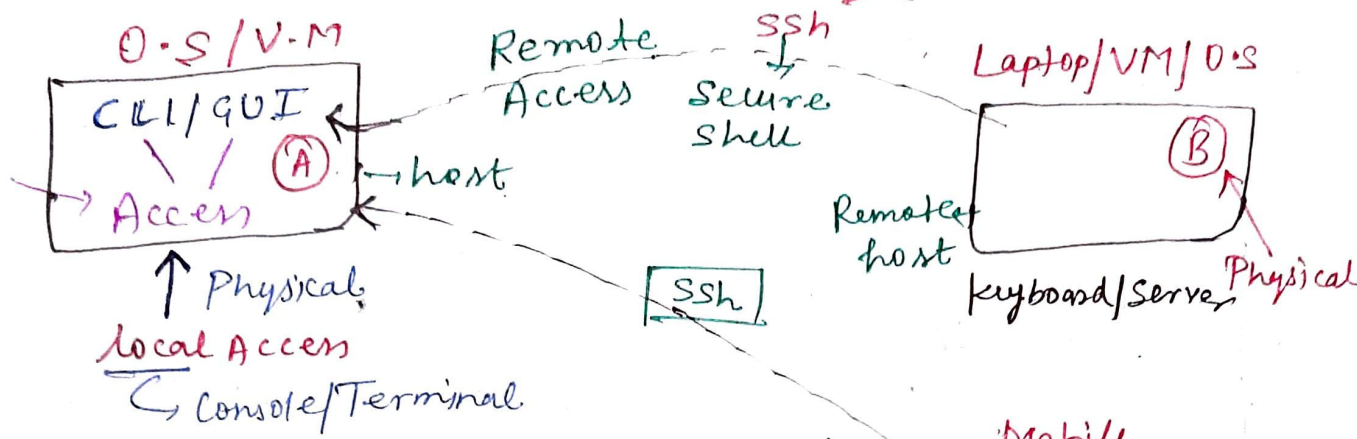 O.S/V.M
CLI/GUI
A
Access
host
Physical
local Access
Console/Terminal
Remote
Access
ssh
Secure
Shell
Laptop/VM/O.S
B
Remote
host
Keyboard/Server
Physical
ssh